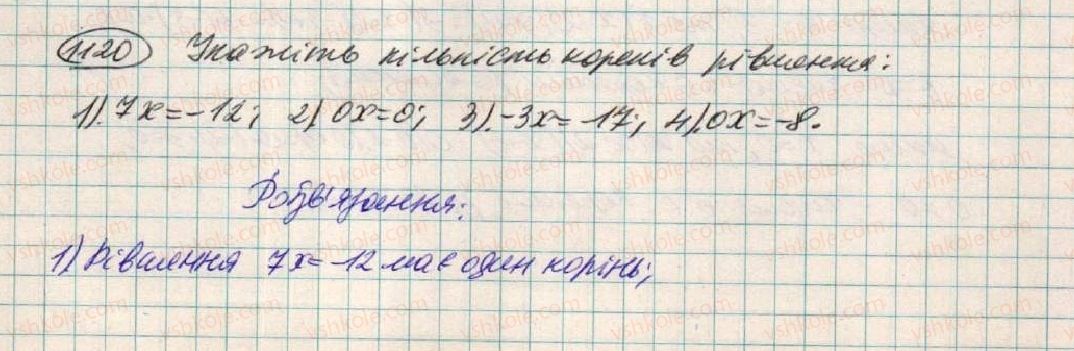 1120 Укажіть кількість коренів рівняння:
1). 7x=-12; 2) 0x=0; 3).-3x=-17; 4).0x=-8.
Розв'язання:
1) Рівняння 7x=-12 має один корінь;